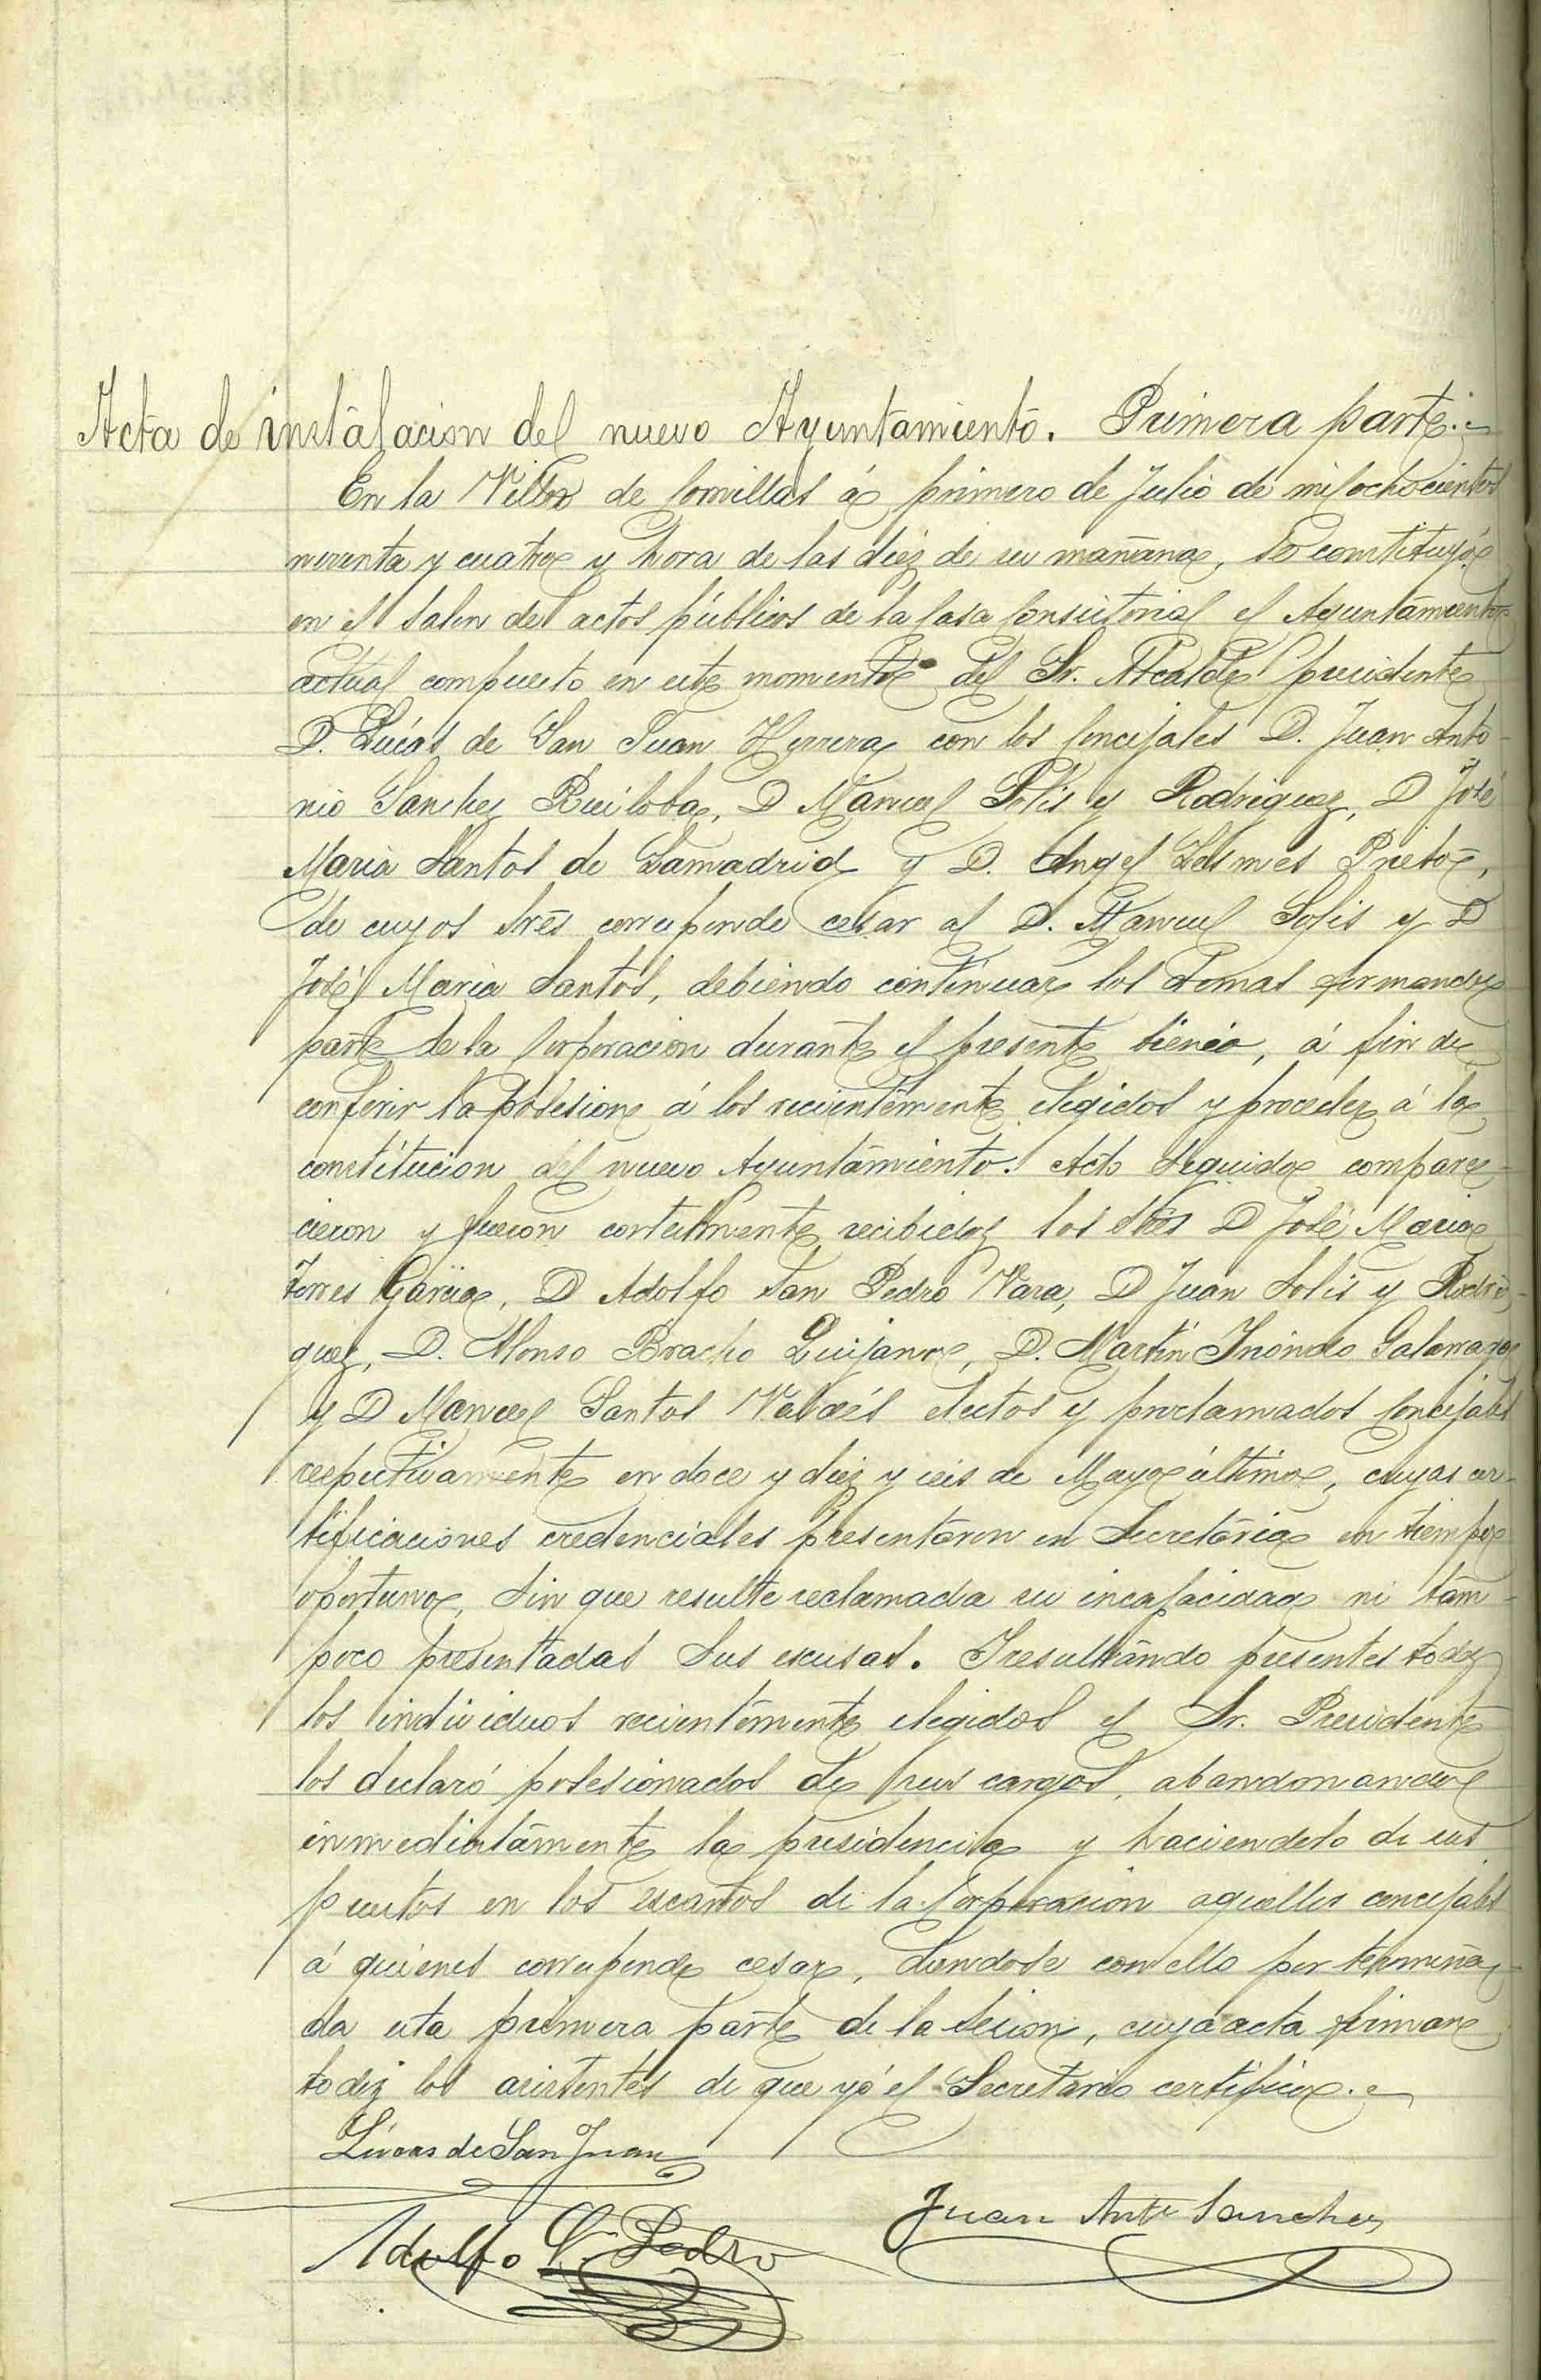 Acta de instalacion del nuevo Ayuntamiento. Primera parte.=
En la Villa de Comillas á primero de Julio de mil ochocientos
noventa y cuatro y hora de las diez de su mañana, se constituyó
en el salon de actos públicos de la Casa Consistorial el Ayuntamiento
actual compuesto en este momento del Sr. Alcalde presidente
D. Lúcas de San Juan Herrera con los Concejales D. Juan Anto-
nio Sanchez Ruiloba, D Manuel Solís y Rodriguez, D José
Maria Santos de Lamadrid y D. Angel Lesmes Prieto,
de cuyos Sres corresponde cesar al D. Manuel Solis y D
José Maria Santos, debiendo continuar los demas formando
parte de la Corporacion durante el presente bienio, á fin de
conferir la posesion á los recientemente elegidos y proceder á la
constitucion del nuevo Ayuntamiento. Acto seguido compare-
cieron y fueron cortesmente recibidos los Sres D José Maria
Torres Garcia, D Adolfo San Pedro Vara, D Juan Solis y Rodri-
guez, D. Alonso Bracho Quijano, D. Martin Galarraga
y D Manuel Santos Valdés electos y proclamados Concejales
respectivamente en doce y diez y seis de Mayo último, cuyas cer-
tificaciones credenciales presentaron en Secretaria en tiempo
oportuno, sin que resulte reclamada su incapacidad ni tam-
poco presentadas sus escusas. Y resultando presentes todos
los individuos recientemente elegidos el Sr. Presidente
los declaró posesionados de sus cargos, abandonando
inmediatamente la presidencia y haciendolo de sus
puestos en los escaños de la Corporacion aquellos concejales
á quienes corresponde cesar, dandose con ello por termina-
da esta primera parte de la sesion, cuya acta firman
todos los asistentes de que yó el Secretario certifico.=
Lúcas de San Juan
Juan Anto Sanchez
Adolfo Sn. Pedro